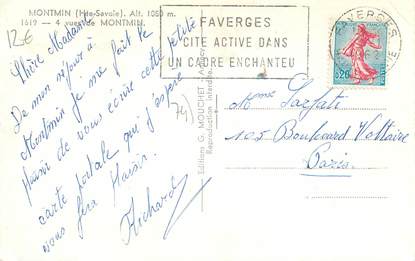 MONTMIN (Hte-Savoie). Alt. 1050 m.
1619 - 4 vues de MONTMIN.
12€
Chère Madame
De mon séjour à
Montmin je me fait le
plaisir de vous écrire cette petite
carte postale qui j'espère
vous fera plaisir.
Richard
(74)
Editions G. MOUCHET
Reproduction interdite.
FAVERGES
CITE ACTIVE DANS
UN CADRE ENCHANTEU
FAVERGES
0,20
Mme Sarfati
105 Boulevard Voltaire
Paris